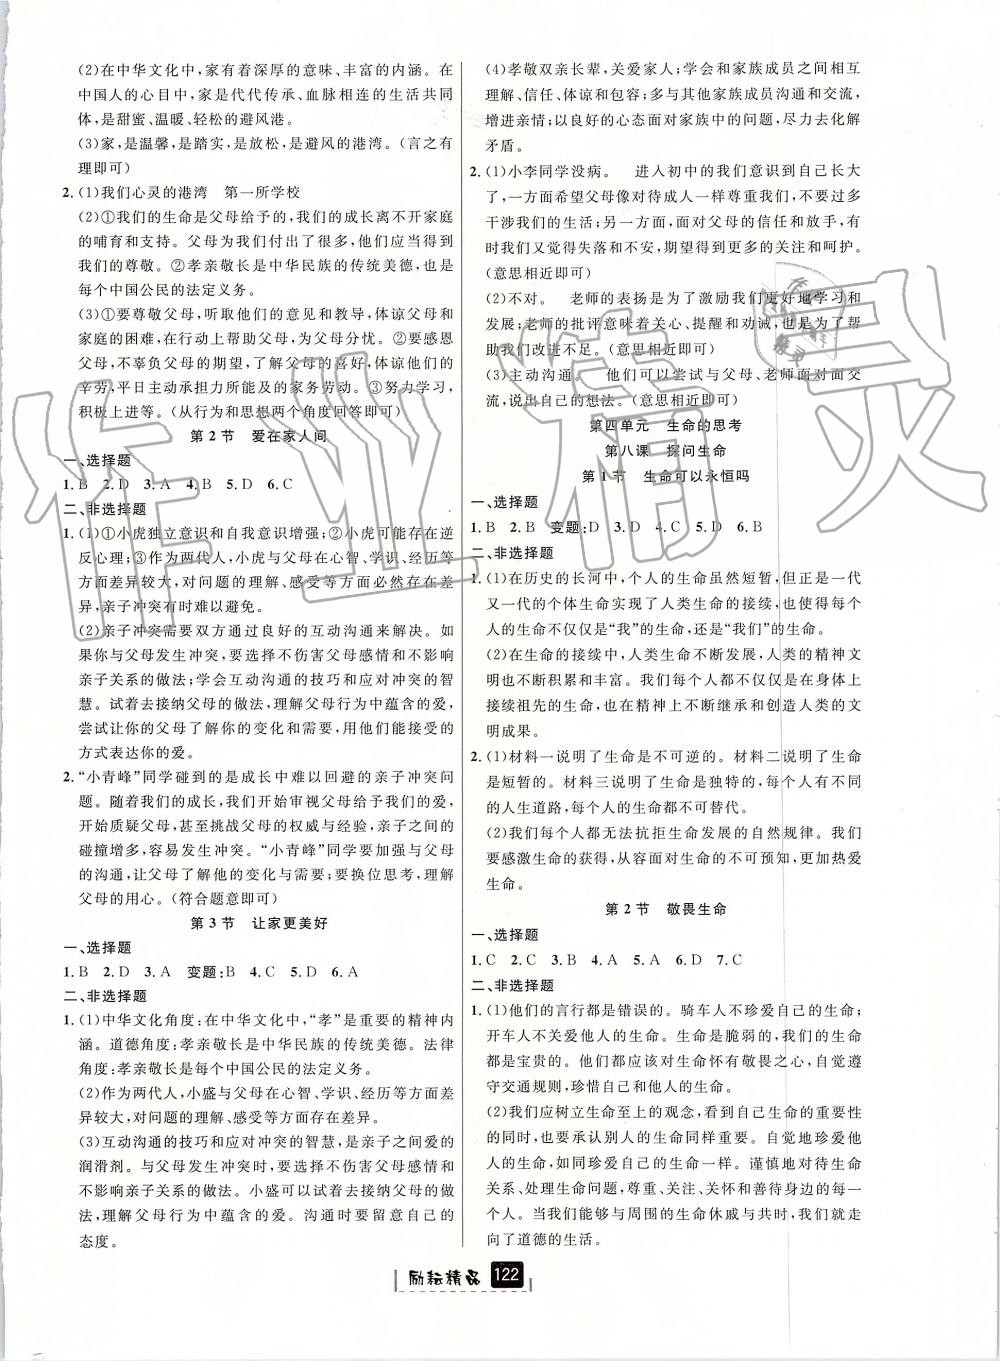 (2)在中华文化中,家有着深厚的意味、丰富的内涵。在
中国人的心目中,家是代代传承、血脉相连的生活共同
体,是甜蜜、温暖、轻松的避风港。
(3)家,是温馨,是踏实,是放松,是避风的港湾。(言之有
理即可)
2. (1)我们心灵的港湾　第一所学校
(2)①我们的生命是父母给予的,我们的成长离不开家庭
的哺育和支持。父母为我们付出了很多,他们应当得到
我们的尊敬。②孝亲敬长是中华民族的传统美德,也是
每个中国公民的法定义务。
(3)①要尊敬父母,听取他们的意见和教导,体谅父母和
家庭的困难,在行动上帮助父母,为父母分忧。②要感恩
父母,不辜负父母的期望,了解父母的喜好,体谅他们的
辛劳,平日主动承担力所能及的家务劳动。③努力学习,
积极上进等。(从行为和思想两个角度回答即可)
第 2 节　爱在家人间
一、选择题
1. B　2. D　3. A　4. B　5. D　6. C
二、非选择题
1. (1)①小虎独立意识和自我意识增强;②小虎可能存在逆
反心理;③作为两代人,小虎与父母在心智、学识、经历等
方面差异较大,对问题的理解、感受等方面必然存在差
异,亲子冲突有时难以避免。
(2)亲子冲突需要双方通过良好的互动沟通来解决。如
果你与父母发生冲突,要以不伤害父母感情和不影响
亲子关系的做法;学会互动沟通的技巧和应对冲突的智
慧。试着去接纳父母的做法,理解父母行为中蕴含的爱,
尝试让你的父母了解你的变化和需要,用他们能接受的
方式表达你的爱。
2. “小青峰”同学碰到的是成长中难以回避的亲子冲突问
题。随着我们的成长,我们开始审视父母给予我们的爱,
开始质疑父母,甚至挑战父母的权威与经验,亲子之间的
碰撞增多,容易发生冲突。“小青峰”同学要加强与父母
的沟通,让父母了解他的变化与需要;要换位思考,理解
父母的用心。(符合题意即可)
第 3 节　让家更美好
一、选择题
1. B　2. D　3. A　变题:B　4. C　5. D　6. A
二、非选择题
1. (1)中华文化角度:在中华文化中,“孝”是重要的精神内
涵。道德角度:孝亲敬长是中华民族的传统美德。法律
角度:孝亲敬长是每个中国公民的法定义务。
(2)作为两代人,小盛与父母在心智、学识、经历等方面差
异较大,对问题的理解、感受等方面存在差异。
(3)互动沟通的技巧和应对冲突的智慧,是亲子之间爱的
润滑剂。与父母发生冲突时,要选择不伤害父母感情和
不影响亲子关系的做法。小盛可以试着去接纳父母的做
法,理解父母行为中蕴含的爱。沟通时要留意自己的
态度。
(4)孝敬双亲长辈,关爱家人;学会和家族成员之间相互
理解、信任、体谅和包容;多与其他家族成员沟通和交流,
增进亲情;以良好的心态面对家族中的问题,尽力去化解
矛盾。
2. (1)小李同学没病。　进入初中的我们意识到自己长大
了,一方面希望父母像对待成人一样尊重我们,不要过多
干涉我们的生活;另一方面,面对父母的信任和放手,有
时我们又觉得失落和不安,期望得到更多的关注和呵护。
(意思相近即可)
(2)不对。　老师的表扬是为了激励我们更好地学习和
发展;老师的批评意味着关心、提醒和劝诫,也是为了帮
助我们改进不足。(意思相近即可)
(3)主动沟通。　他们可以尝试与父母、老师面对面交
流,说出自己的想法。(意思相近即可)
第四单元　生命的思考
第八课　探问生命
第 1 节　生命可以永恒吗
一、选择题
1. B　2. B　变题:D　3. D　4. C　5. D　6. B
二、非选择题
1. (1)在历史的长河中,个人的生命虽然短暂,但正是一代
又一代的个体生命实现了人类生命的接续,也使得每个
人的生命不仅仅是“我”的生命,还是“我们”的生命。
(2)在生命的接续中,人类生命不断发展,人类的精神文
明也不断积累和丰富。我们每个人都不仅仅是在身体上
接续祖先的生命,也在精神上不断继承和创造人类的文
明成果。
2. (1)材料一说明了生命是不可逆的。材料二说明了生命
是短暂的。材料三说明了生命是独特的,每个人有不同
的人生道路,每个人的生命都不可替代。
(2)我们每个人都无法抗拒生命发展的自然规律。我们
要感激生命的获得,从容面对生命的不可预知,更加热爱
生命。
第 2 节　敬畏生命
一、选择题
1. C　2. C　3. A　4. D　5. A　6. D　7. C
二、非选择题
1. (1)他们的言行都是错误的。骑车人不珍爱自己的生命;
开车人不关爱他人的生命。生命是脆弱的,我们的生命
都是宝贵的。他们都应该对生命怀有敬畏之心,自觉遵
守交通规则,珍惜自己和他人的生命。
(2)我们应树立生命至上的观念,看到自己生命的重要性
的同时,也要承认别人的生命同样重要。自觉地珍爱他
人的生命,如同珍爱自己的生命一样。谨慎地对待生命
关系、处理生命问题,尊重、关注、关怀和善待身边的每一
个人。当我们能够与周围的生命休戚与共时,我们就走
向了道德的生活。
励耘精品 122
作业精灵